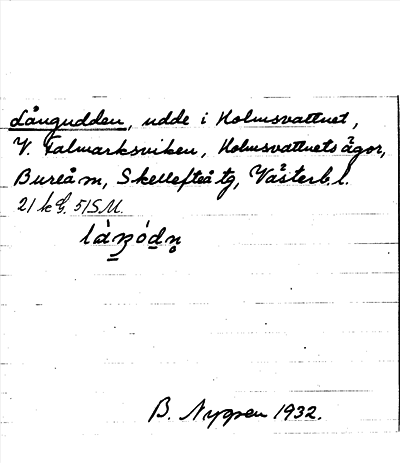 Långudden, udde i Holmsvattnet,
V. Falmarksviken, Holmsvattnets ägor,
Bureå m, Skellefteå tg, Västerb. l.
21 k 5 i S.M.
B. Nygren 1932.